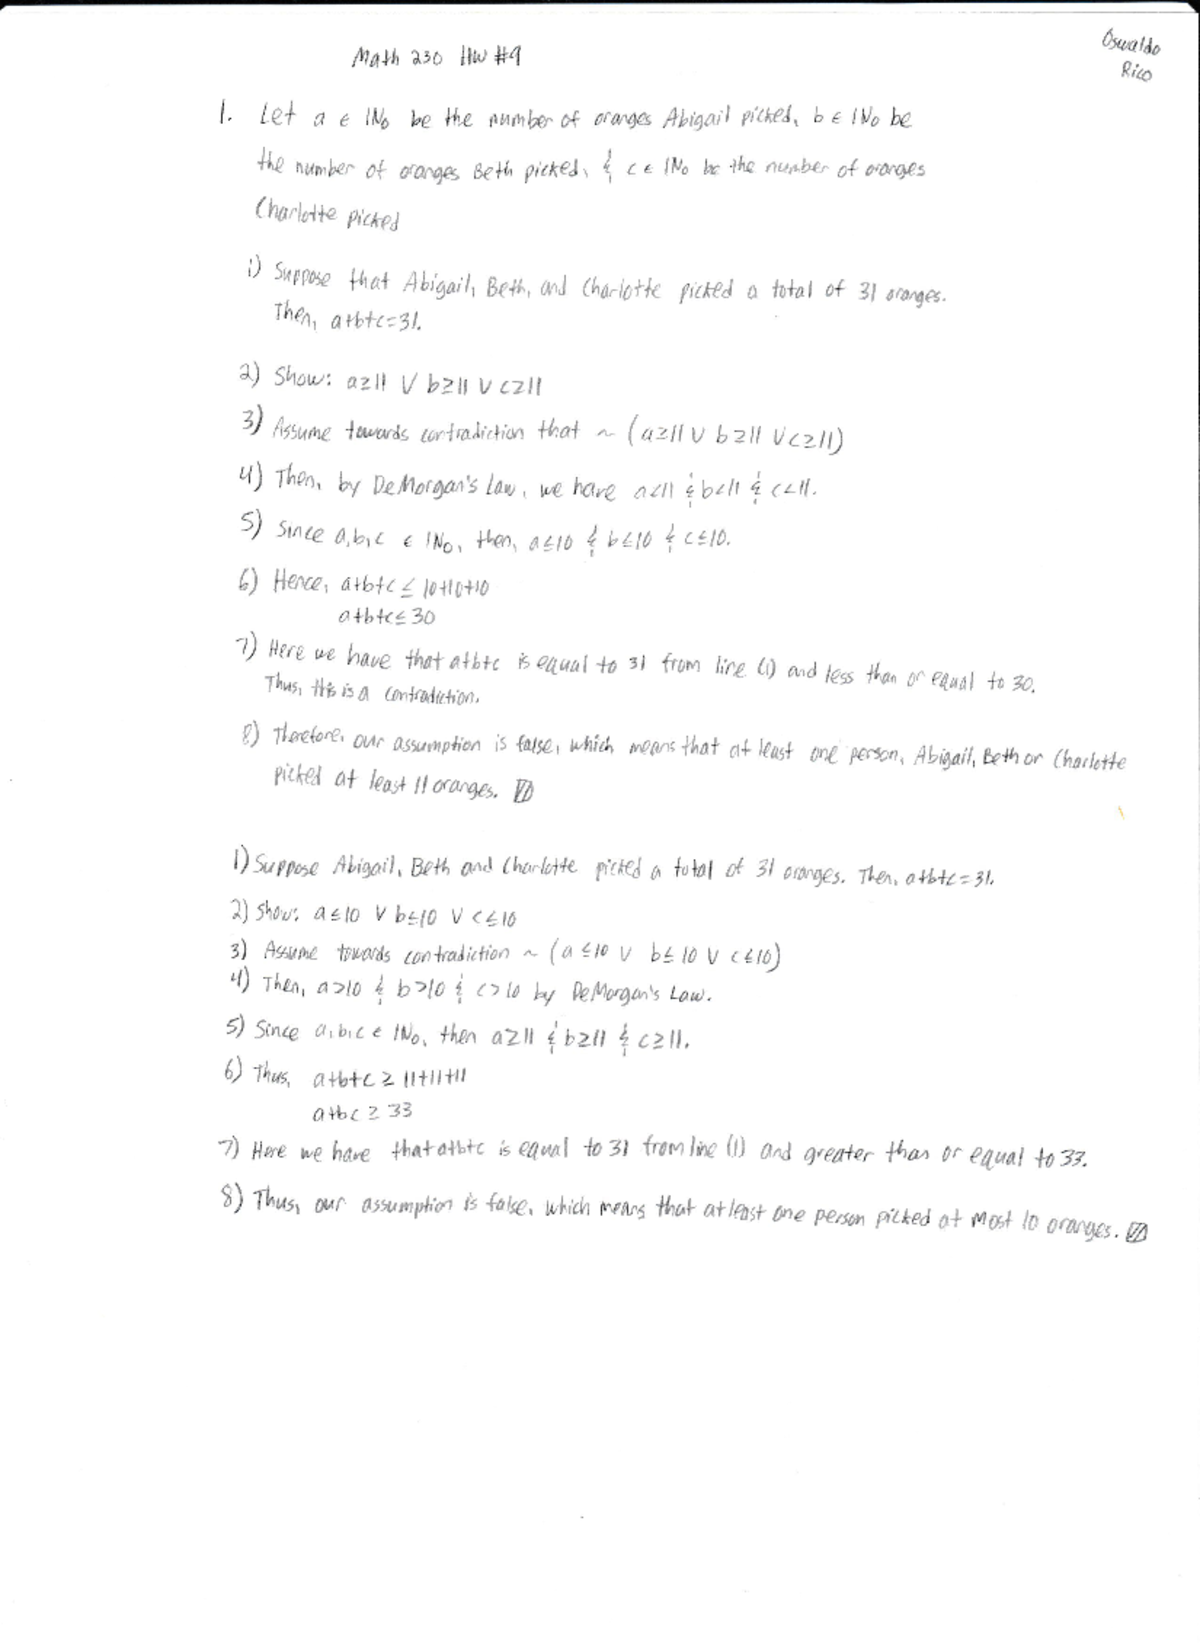 Math 230 HW #9
Oswaldo
Rico
1. Let a ∈ ℕ₀ be the number of oranges Abigail picked, b ∈ ℕ₀ be
the number of oranges Beth picked, & c ∈ ℕ₀ be the number of oranges
Charlotte picked
1) Suppose that Abigail, Beth, and Charlotte picked a total of 31 oranges.
Then, a+b+c=31.
2) Show: a≥11 ∨ b≥11 ∨ c≥11
3) Assume towards contradiction that ~ (a≥11 ∨ b≥11 ∨ c≥11)
4) Then, by DeMorgan's Law, we have a<11 & b<11 & c<11.
5) Since a,b,c ∈ ℕ₀, then, a≤10 & b≤10 & c≤10.
6) Hence, a+b+c ≤ 10+10+10
a+b+c≤30
7) Here we have that a+b+c is equal to 31 from line (1) and less than or equal to 30.
Thus, this is a contradiction.
8) Therefore, our assumption is false, which means that at least one person, Abigail, Beth or Charlotte
picked at least 11 oranges.
1) Suppose Abigail, Beth and Charlotte picked a total of 31 oranges. Then, a+b+c=31.
2) Show: a≤10 ∨ b≤10 ∨ c≤10
3) Assume towards contradiction ~ (a≤10 ∨ b≤10 ∨ c≤10)
4) Then, a>10 & b>10 & c>10 by DeMorgan's Law.
5) Since a,b,c ∈ ℕ₀, then a≥11 & b≥11 & c≥11.
6) Thus, a+b+c ≥ 11+11+11
a+bc ≥ 33
7) Here we have that a+b+c is equal to 31 from line (1) and greater than or equal to 33.
8) Thus, our assumption is false, which means that at least one person picked at most 10 oranges.